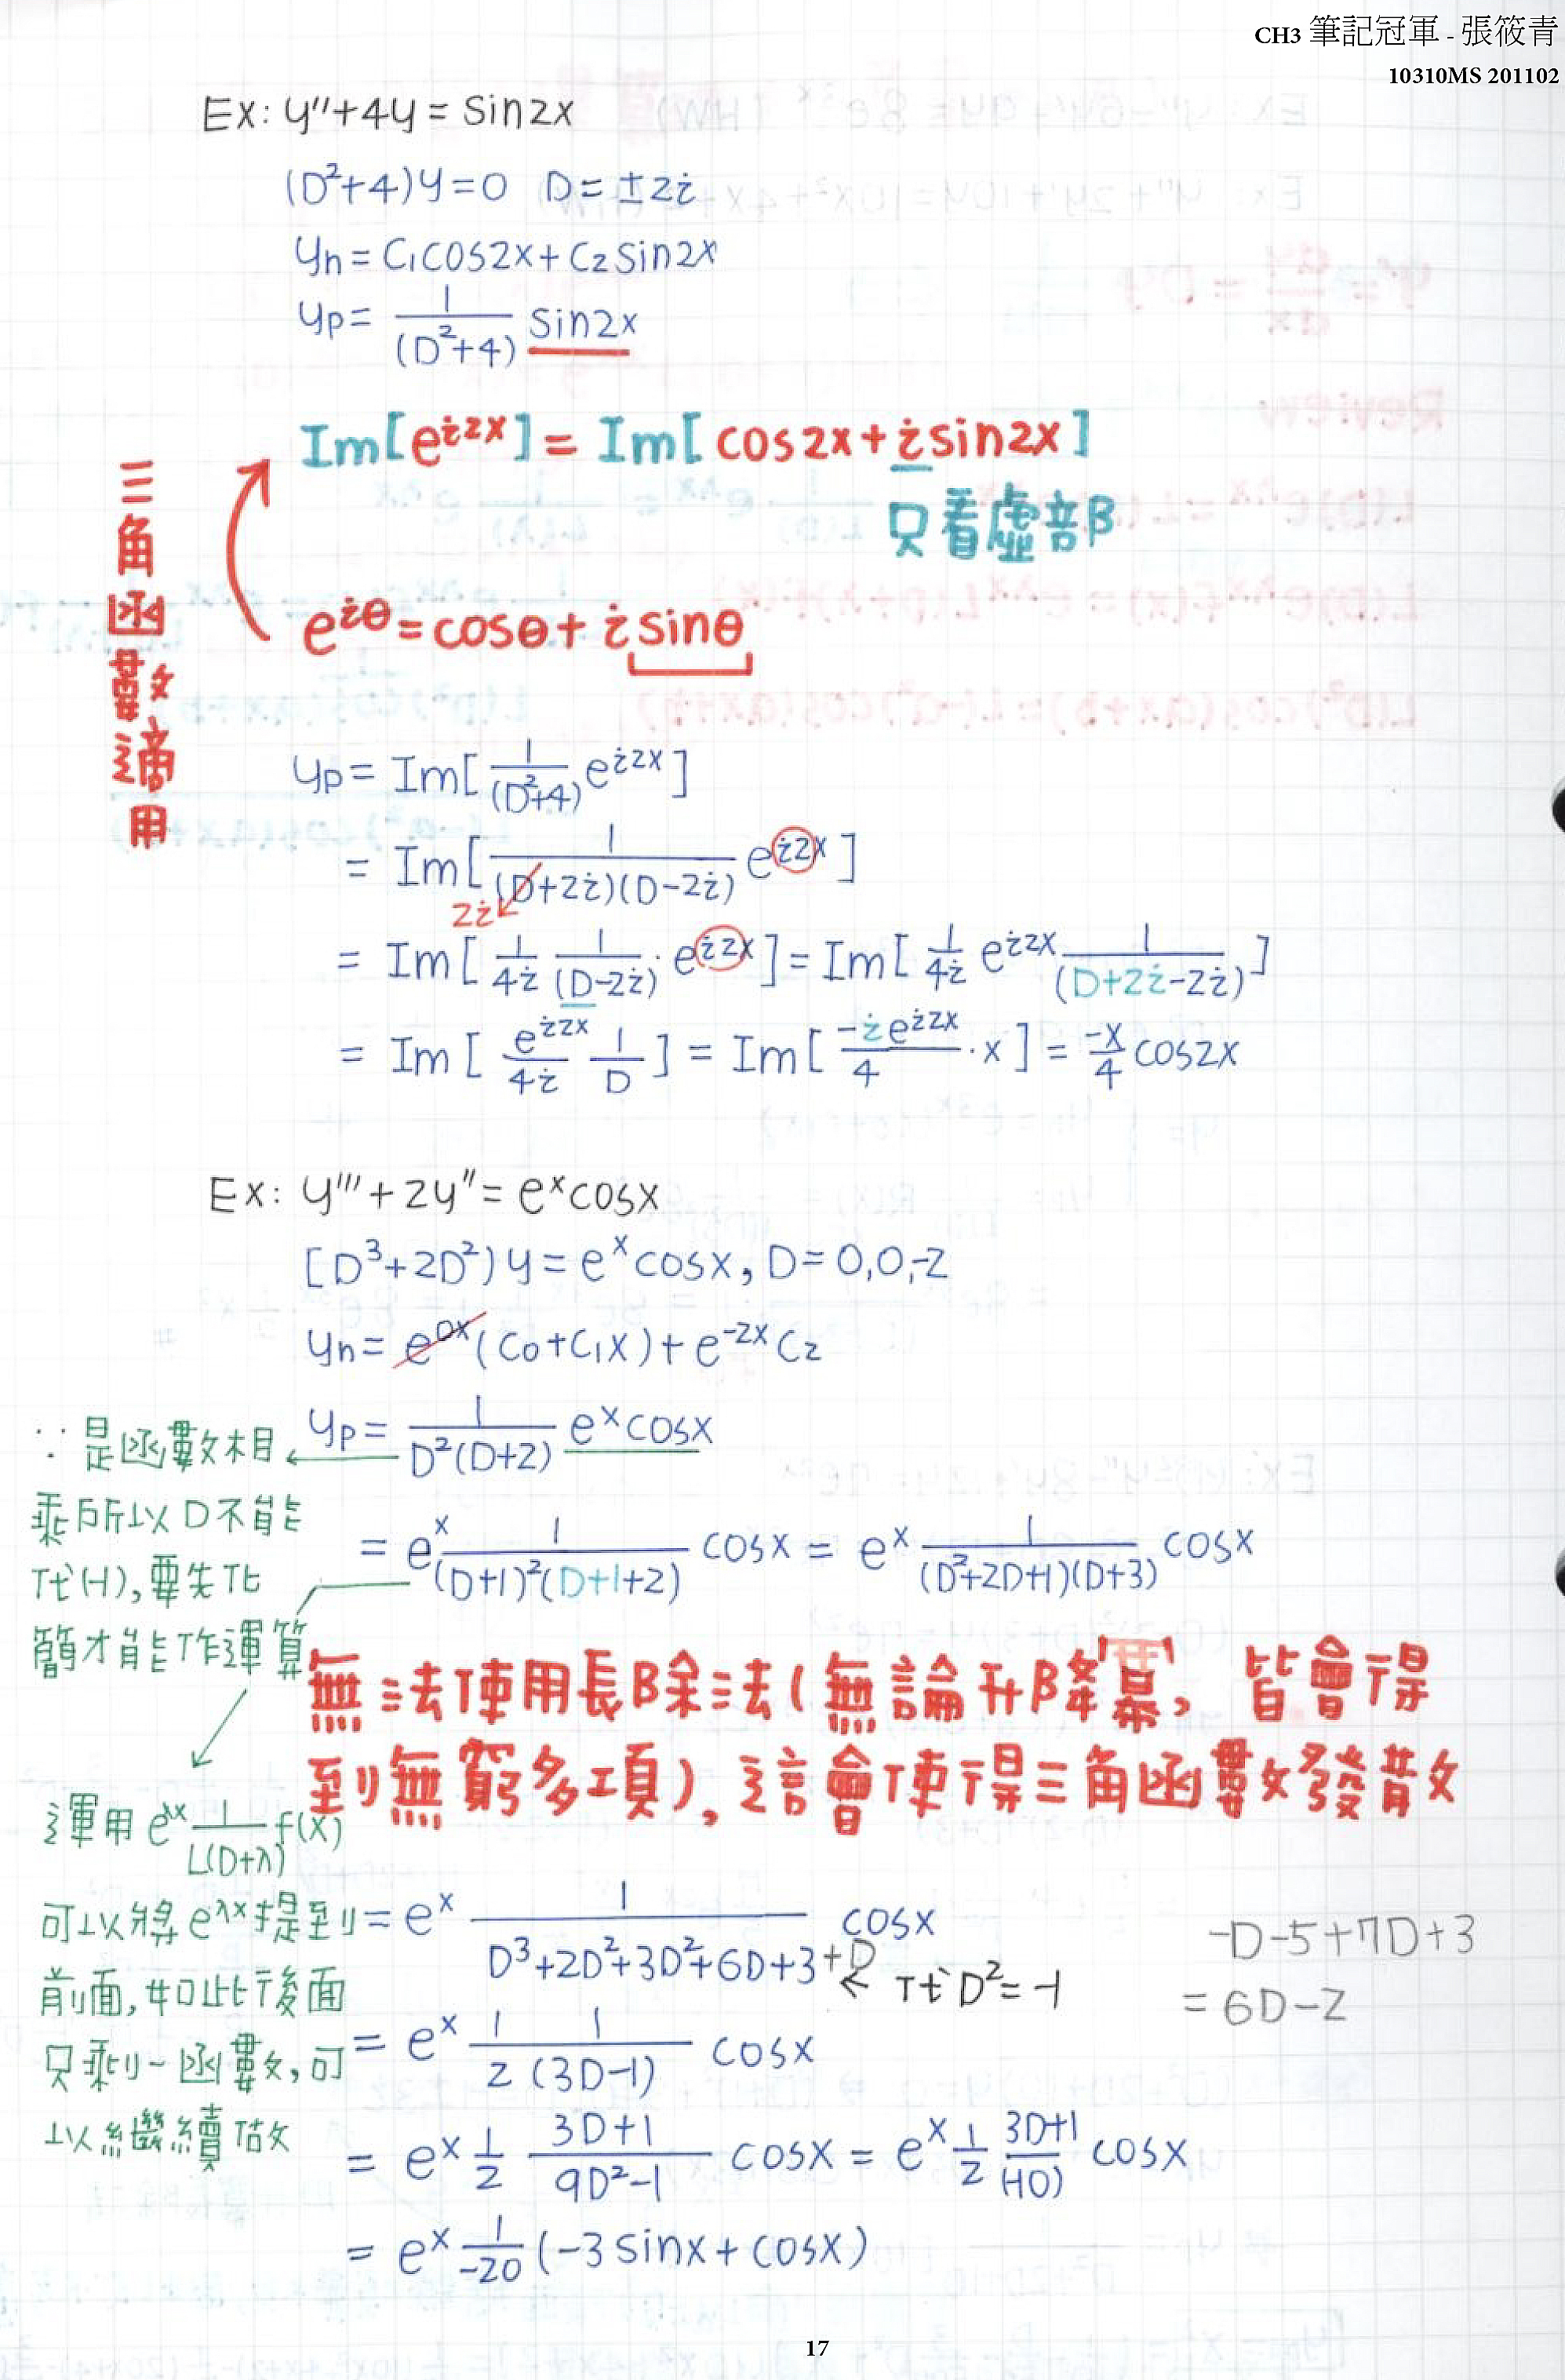 CH3 筆記冠軍 - 張筱青
10310MS 201102
Ex: y''+4y = sin2x
(D²+4)y=0 D=±2i
yh = C₁cos2x + C₂sin2x
yp = 1/(D²+4) sin2x
三角函數適用
Im[e^{i2x}] = Im[cos2x + i sin2x]
只看虛部
e^{iθ} = cosθ + i sinθ
yp = Im[1/(D²+4) e^{i2x}]
= Im[1/((D+2i)(D-2i)) e^{i2x}]
2i
= Im[1/4i 1/(D-2i) · e^{i2x}] = Im[1/4i e^{i2x} 1/(D+2i-2i)]
= Im[e^{i2x}/4i 1/D] = Im[-ie^{i2x}/4 · x] = -x/4 cos2x
Ex: y'''+2y'' = e^x cosx
[D³+2D²)y = e^x cosx, D=0,0,-2
yh = e^{0x}(C₀+C₁x)+e^{-2x}C₂
yp = 1/(D²(D+2)) e^x cosx
= e^x 1/((D+1)²(D+1+2)) cosx = e^x 1/((D²+2D+1)(D+3)) cosx
∵是函數相
乘所以D不能
代(-1),要先化
簡才能作運算
無法使用長除法(無論升降冪,皆會得
到無窮多項),這會使得三角函數發散
運用 e^{λx} 1/L(D+λ) f(x)
可以將e^{λx}提到
前面,如此後面
只乘以一函數,可
以繼續做
= e^x 1/(D³+2D²+3D²+6D+3+D) cosx
← 代D²=-1
-D-5+7D+3
= 6D-2
= e^x 1/2 1/(3D-1) cosx
= e^x 1/2 (3D+1)/(9D²-1) cosx = e^x 1/2 (3D+1)/(-10) cosx
= e^x 1/-20 (-3sinx+cosx)
17